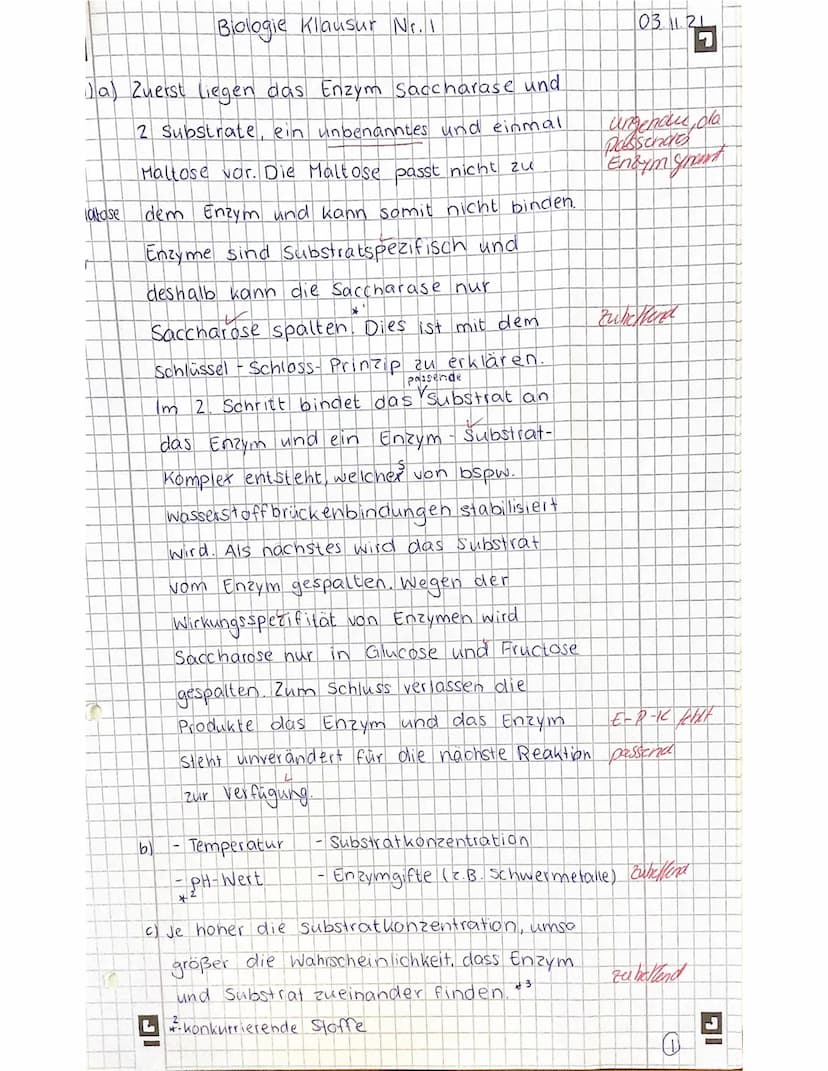 Biologie Klausur Nr. 1 03.11.21
)a) Zuerst liegen das Enzym Saccharase und
2 Substrate, ein unbenanntes und einmal
Maltose vor. Die Maltose passt nicht zu
dem Enzym und kann somit nicht binden.
Enzyme sind Substratspezifisch und
deshalb kann die Saccharase nur
Saccharose spalten.*¹ Dies ist mit dem
Schlüssel-Schloss-Prinzip zu erklären.
passende
Im 2. Schritt bindet das Substrat an
das Enzym und ein Enzym-Substrat-
Komplex entsteht, welches von bspw.
Wasserstoffbrückenbindungen stabilisiert
wird. Als nächstes wird das Substrat
vom Enzym gespalten. Wegen der
Wirkungsspezifität von Enzymen wird
Saccharose nur in Glucose und Fructose
gespalten. Zum Schluss verlassen die
Produkte das Enzym und das Enzym E-P-K fehlt
steht unverändert für die nächste Reaktion passend
zur Verfügung.
b) - Temperatur - Substratkonzentration
- pH-Wert - Enzymgifte (z.B. Schwermetalle) zutreffend
*²
c) Je höher die Substratkonzentration, umso
größer die Wahrscheinlichkeit, dass Enzym
und Substrat zueinander finden. *³ zutreffend
*² -konkurrierende Stoffe
1
da
passendes
Enzym
zutreffend